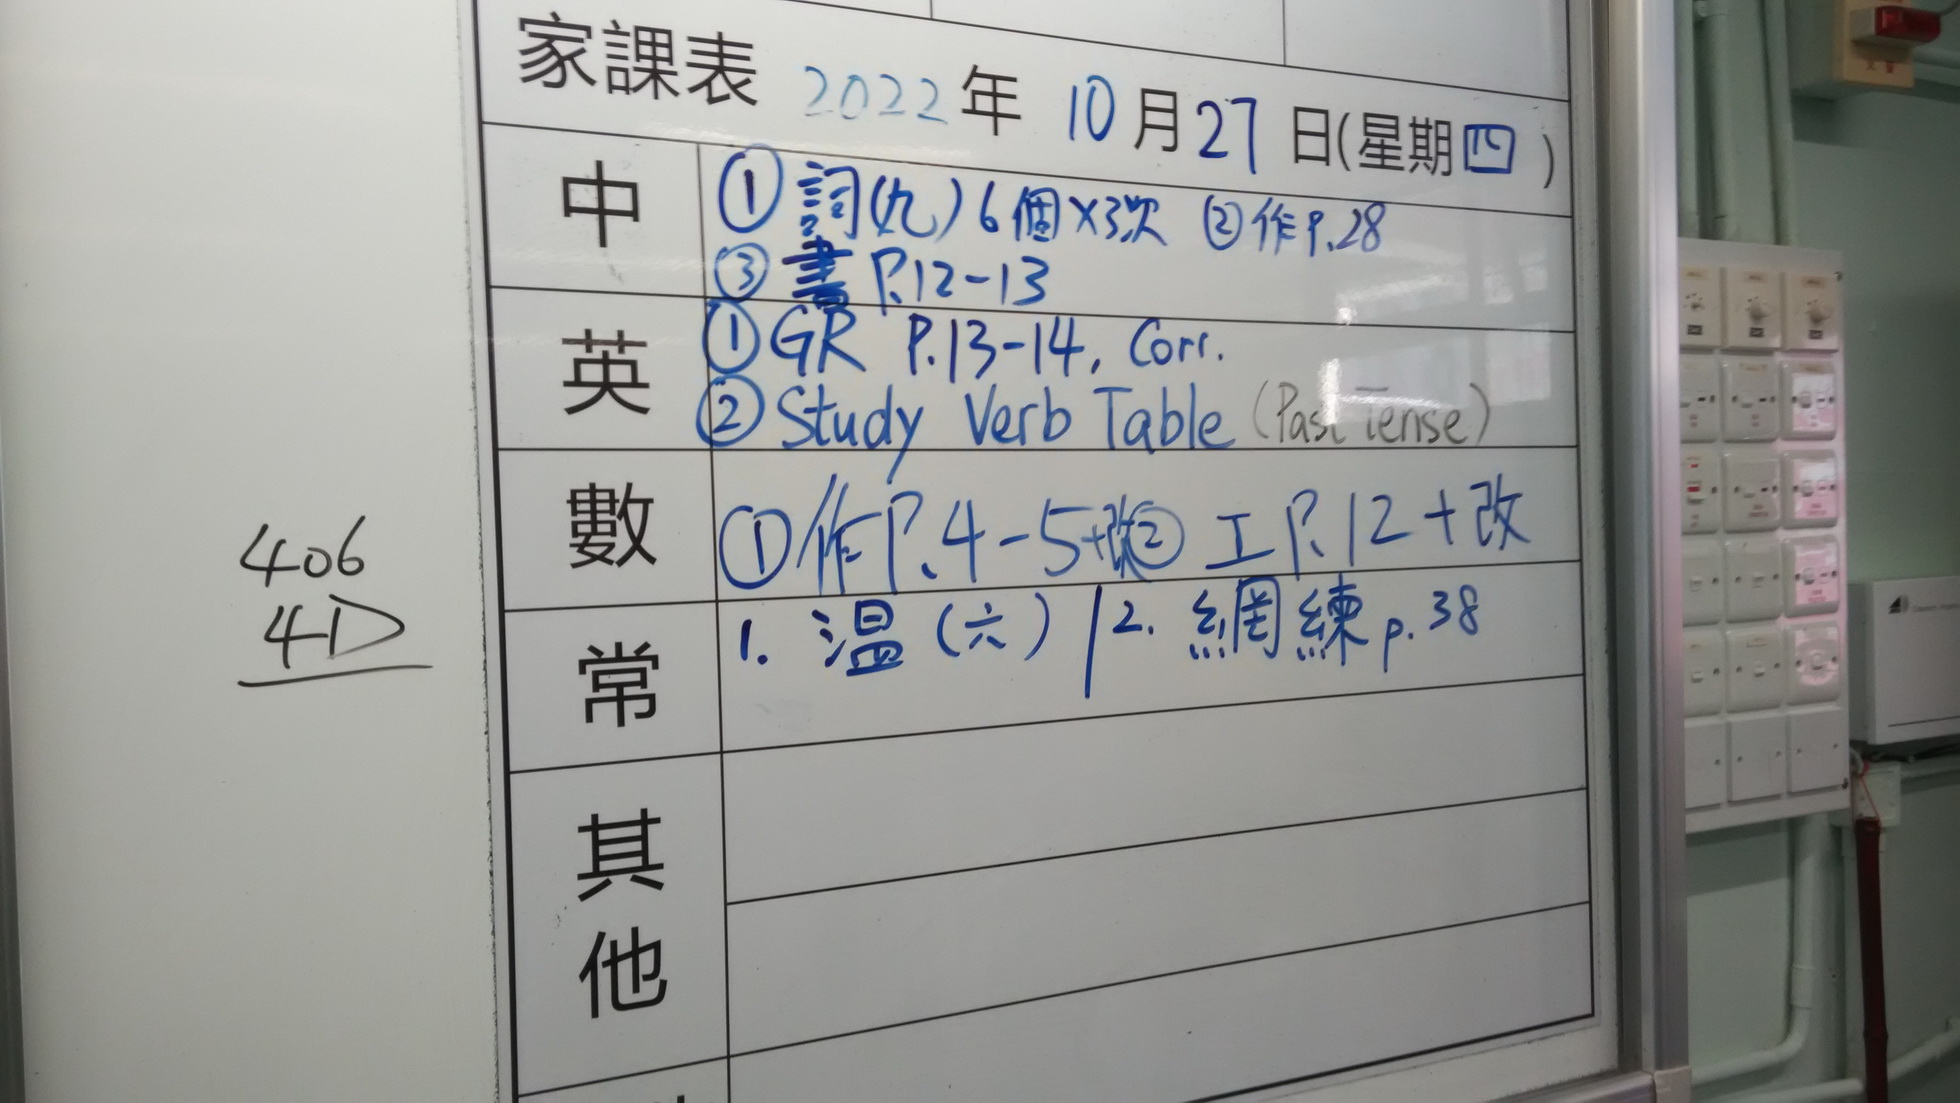 家課表 2022年 10月27日(星期四)
中 ①詞(九)6個×3次 ②作P.28
③書 P.12-13
英 ①GR P.13-14, Corr.
②Study Verb Table (Past Tense)
數 ①作P.4-5+改② 工P.12+改
常 1. 溫(六) / 2. 網練 p.38
其他
406
4D